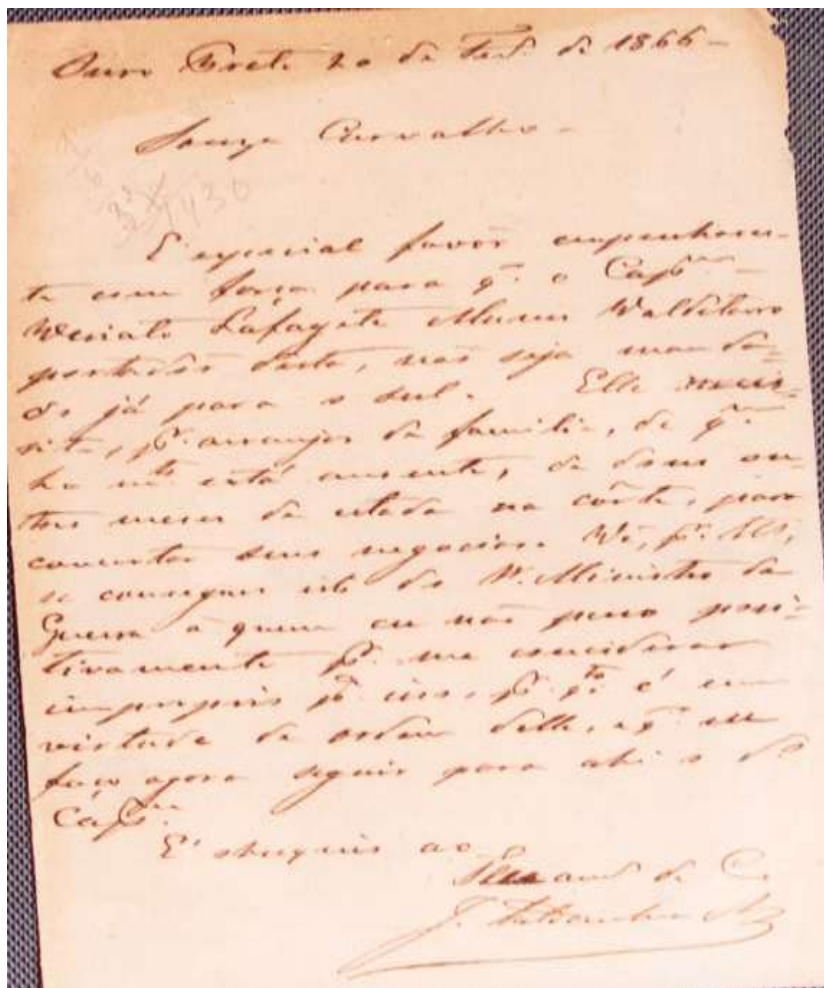 Ouro Preto 20 de Fev. de 1866 -
Souza Carvalho -
E' especial favor empenhares-
te com força para q. o Capm.
Lafayete Muniz
desta, não seja manda-
do já para o sul. Elle neces-
sita, pr. arranjos de familia, de qm.
ha mto. está ausente, de dous ou
tres meses de estada na côrte, para
concertar seus negocios. Vê, pr. tto,
se consegues isto do Ministro da
Guerra a quem eu não peço posi-
tivamente pr. me considerar
improprio pa. isso, pr. qto. é em
virtude de ordem delle, q. eu
faço agora seguir para ahi o do.
Capm.
E' obsequio ao
de C.
J.